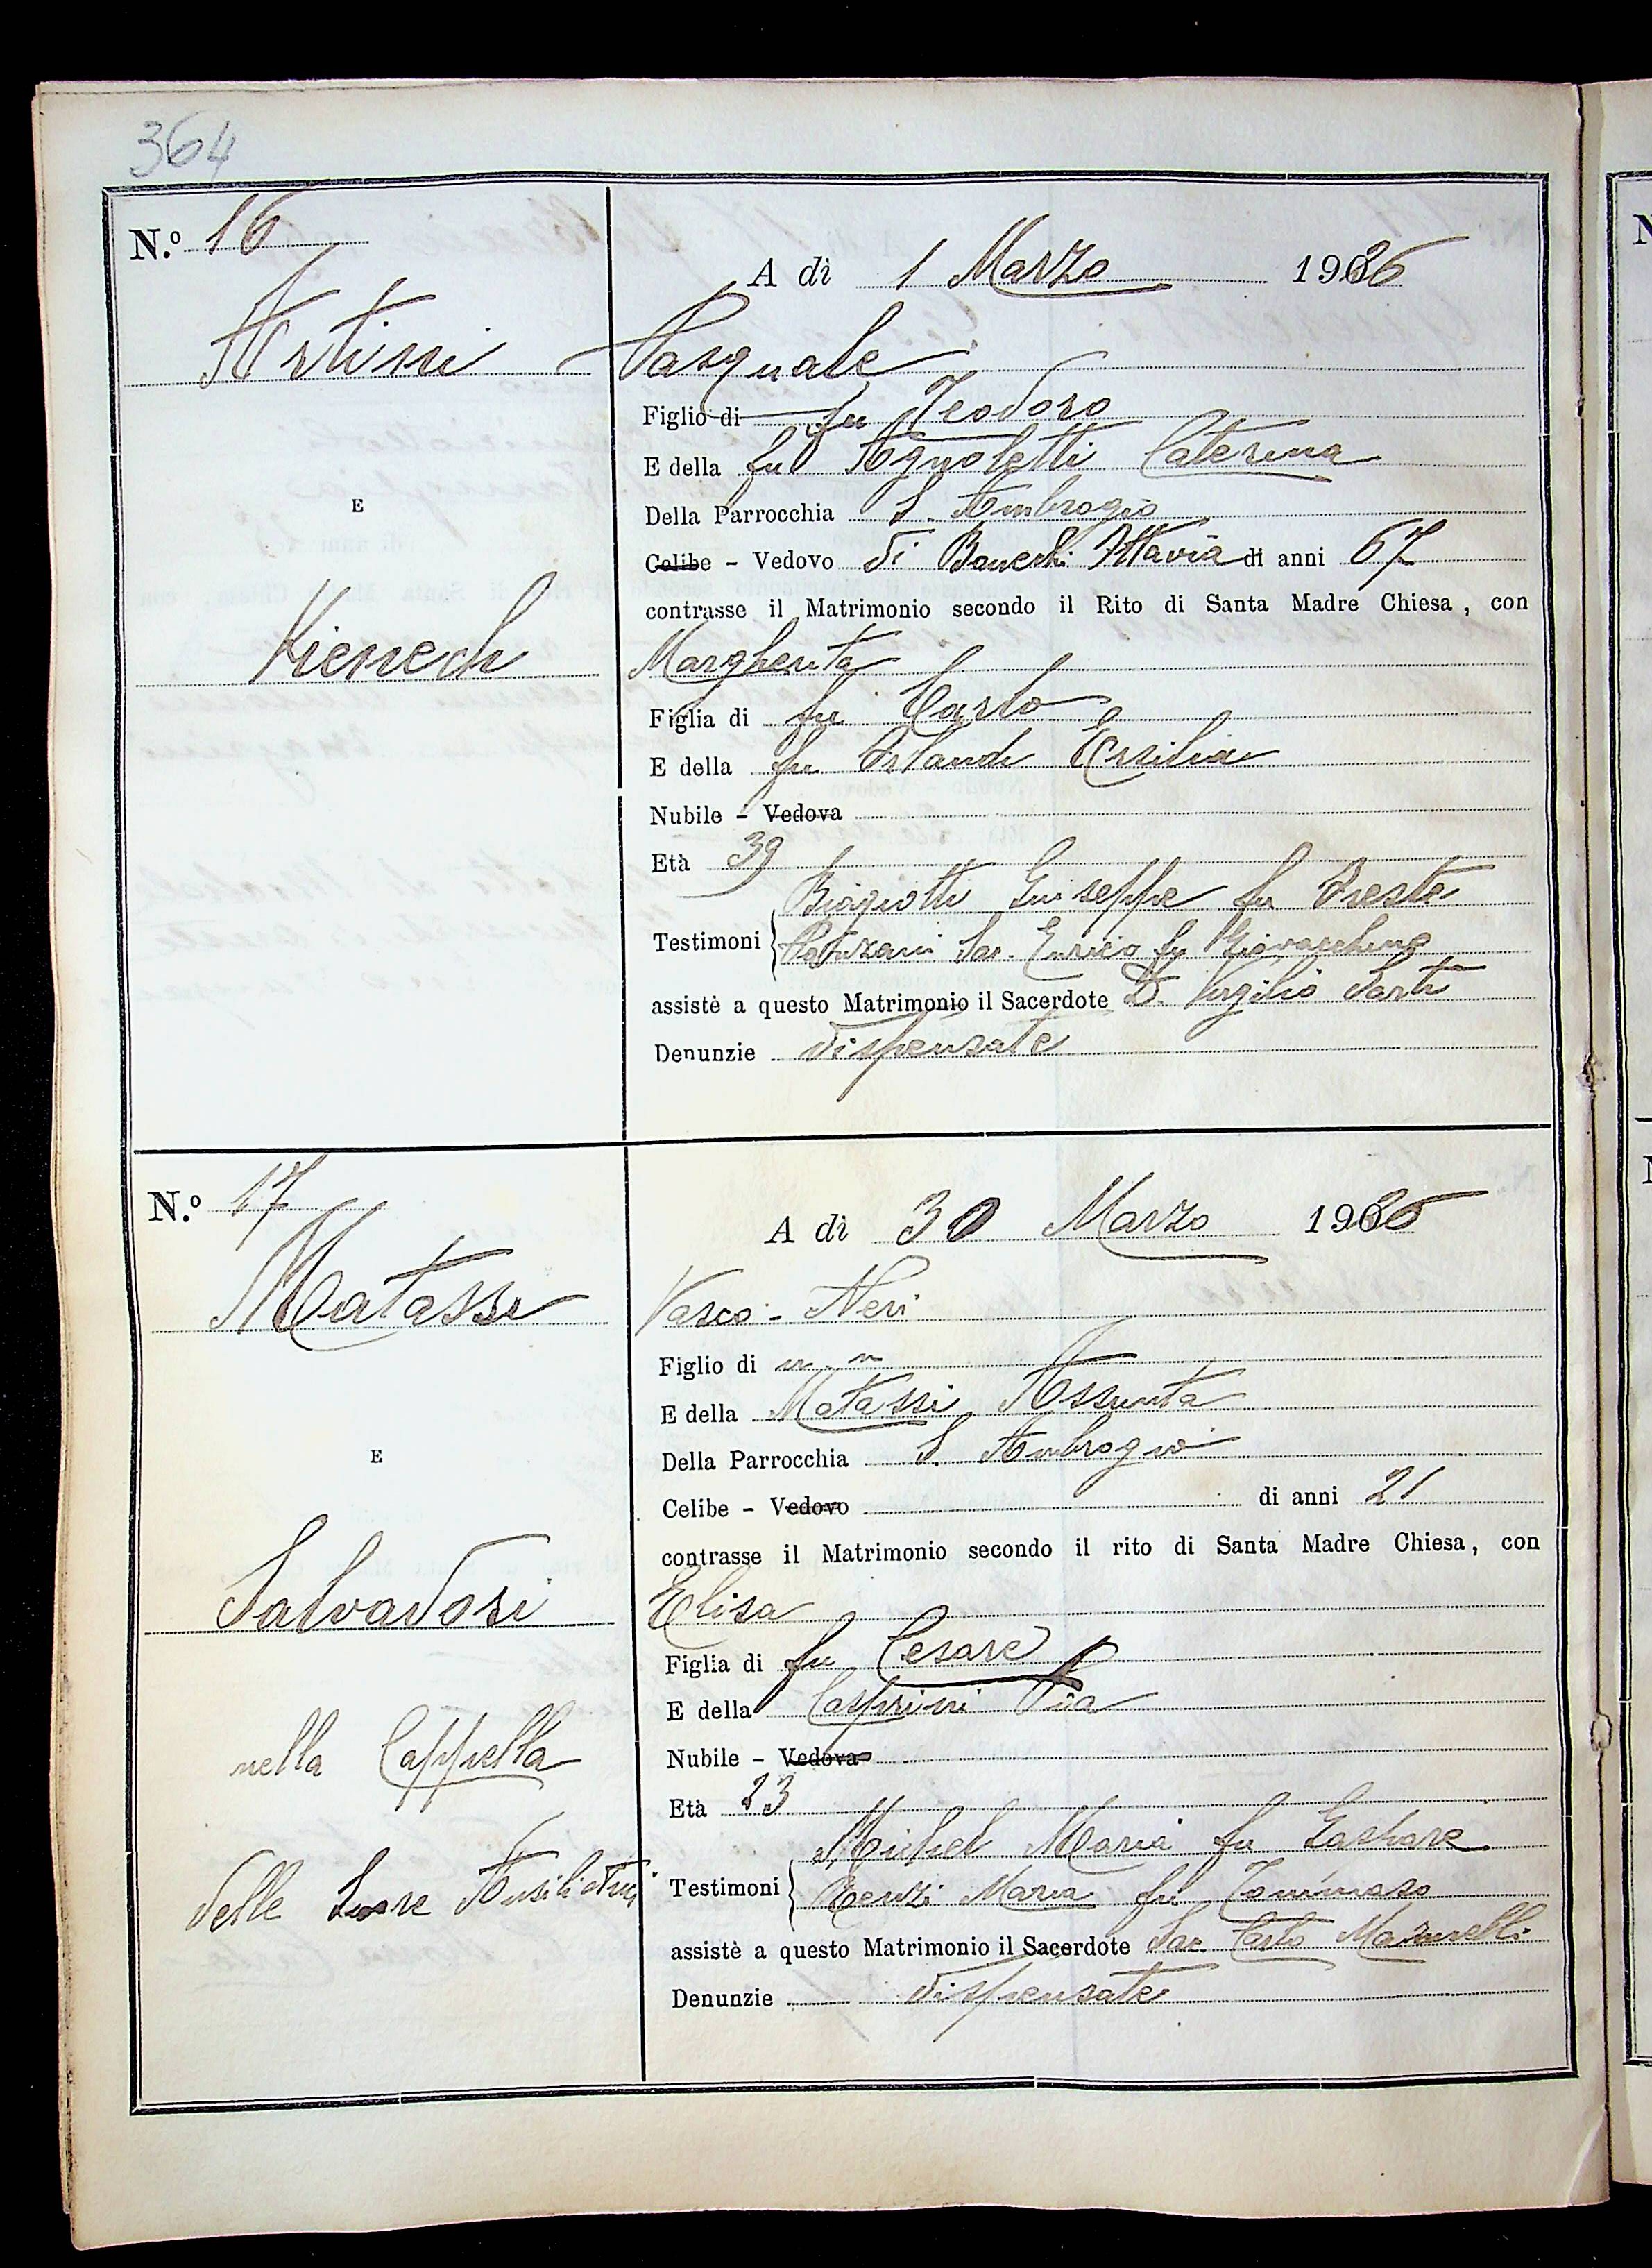 364
N.º 16
A dì 1 Marzo 1936
Artini Pasquale
Figlio di fu Teodoro
E della fu Agnoletti Caterina
E
Della Parrocchia S. Ambrogio
Celibe - Vedovo di Banchi Ottavia di anni 67
contrasse il Matrimonio secondo il Rito di Santa Madre Chiesa, con
Kienech Margherita
Figlia di fu Carlo
E della fu Orlandi Ersilia
Nubile - Vedova
Età 39
Testimoni Biagiotti Giuseppe fu Oreste
Sac. Enrico fu Giovacchino
assistè a questo Matrimonio il Sacerdote D. Virgilio Sarti
Denunzie dispensate
N.º 17
A dì 30 Marzo 1936
Matassi Vasco - Neri
Figlio di n. n
E della Matassi Assunta
E
Della Parrocchia S. Ambrogio
Celibe - Vedovo di anni 21
contrasse il Matrimonio secondo il rito di Santa Madre Chiesa, con
Salvadori Elisa
Figlia di fu Cesare
E della Casprini Pia
nella Cappella
Nubile - Vedova
Età 23
delle Suore Ausiliatrici
Testimoni Michel Maria fu Gaspare
Renzi Maria fu Tommaso
assistè a questo Matrimonio il Sacerdote Sac. Carlo
Denunzie dispensate